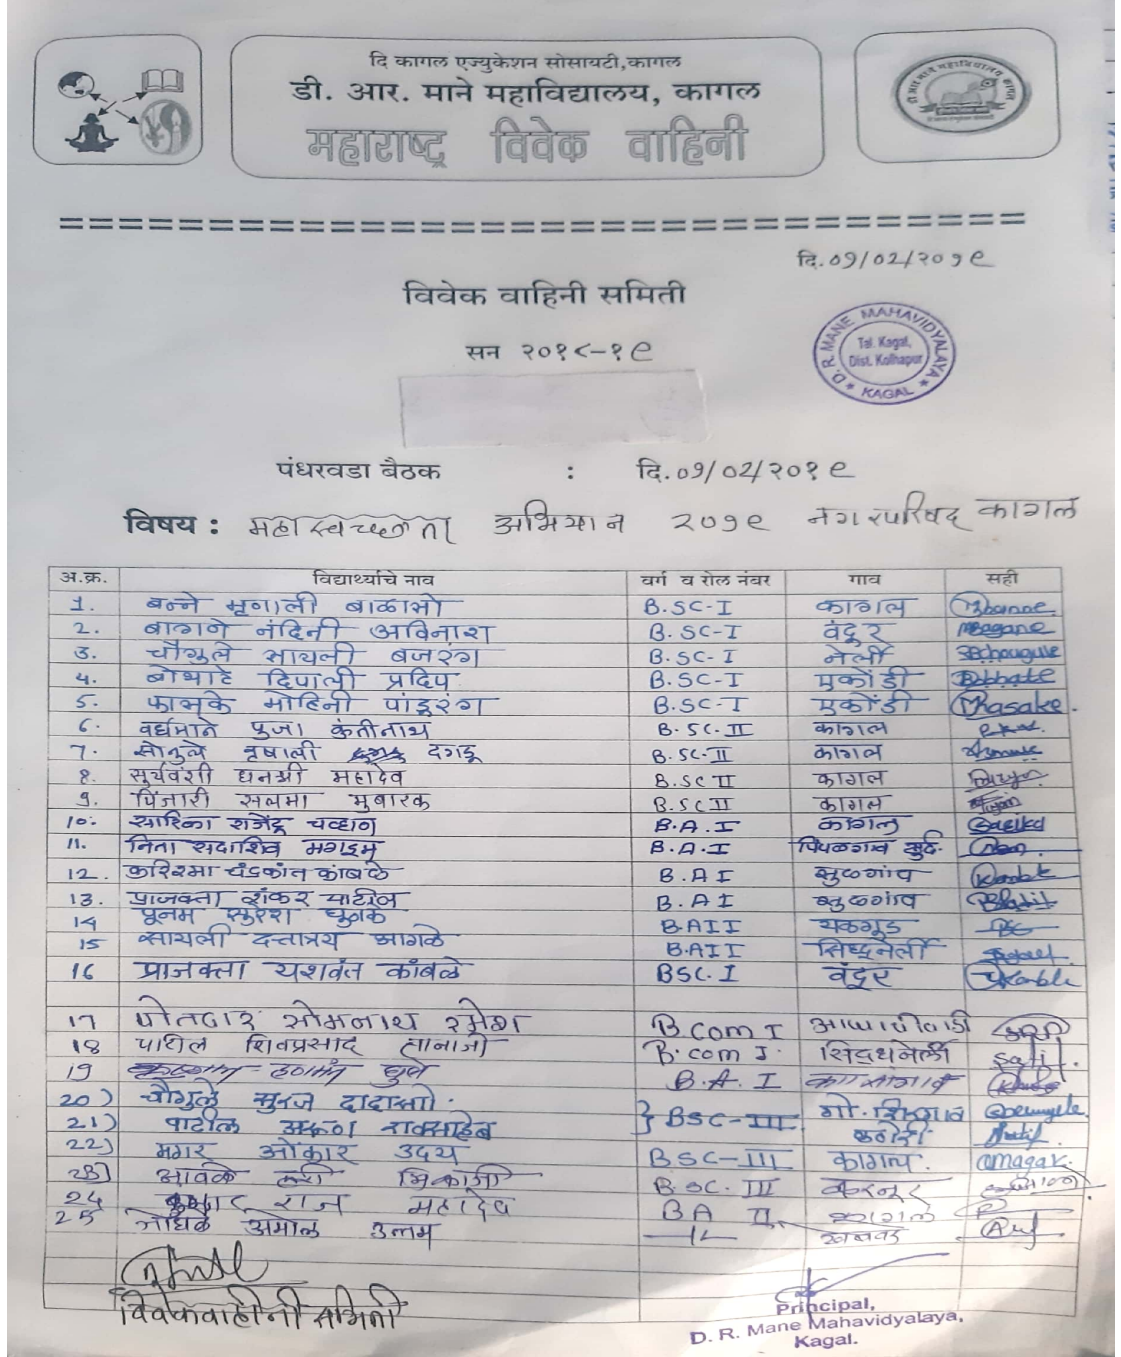 दि कागल एज्युकेशन सोसायटी,कागल
डी. आर. माने महाविद्यालय, कागल
महाराष्ट्र विवेक वाहिनी
दि.०१/०२/२०१९
विवेक वाहिनी समिती
सन २०१८-१९
D. R. MANE MAHAVIDYALAYA
Tal. Kagal,
Dist. Kolhapur
* KAGAL *
पंधरवडा बैठक : दि.०१/०२/२०१९
विषय : महास्वच्छता अभियान २०१९ नगरपरिषद कागल
अ.क्र. विद्यार्थ्यांचे नाव वर्ग व रोल नंबर गाव सही
1. बन्ने मृणाली बाळासो B.SC-I कागल
2. बागने नंदिनी अविनाश B.SC-I वंदूर
3. चौगुले सायली बजरंग B.SC-I
4. बोभाटे दिपाली प्रदिप B.SC-I एकोंडी
5. फासके मोहिनी पांडूरंग B.SC-I एकोंडी
6. वर्धमाने पुजा B.SC.II कागल
7. सोनुले वृषाली दगडू B.SC-II कागल
8. सुर्यवंशी धनश्री महादेव B.SC II कागल
9. पिंजारी सलमा मुबारक B.SC II कागल
10. सारिका राजेंद्र चव्हाण B.A.I कागल
11. निता सदाशिव मगदूम B.A.I पिंपळगाव खुर्द.
12. करिश्मा चंद्रकांत कांबळे B.AI सुळगांव
13. प्राजक्ता शंकर पाटील B.AI सुळगांव
14 पूनम सुरेश BAII यळगूड
15 सायली दत्तात्रय आगळे BAII सिध्दनेर्ली
16 प्राजक्ता यशवंत कांबळे BSC.I वंदूर
17 पोतदार सोमनाथ रमेश B COM I
18 पाटील शिवप्रसाद तानाजी B.com I. सिद्धनेर्ली
19 B.A. I
20) चौगुले सुरज दादासो. } BSC-III
21) पाटील
22) मगर ओंकार उदय BSC-III कागल. Omagar.
23) आवळे भिकाजी B.SC. III करनूर
24 राज महादेव BA II
25 अमोल उत्तम
विवेकवाहीनी समिती
Principal,
D. R. Mane Mahavidyalaya,
Kagal.